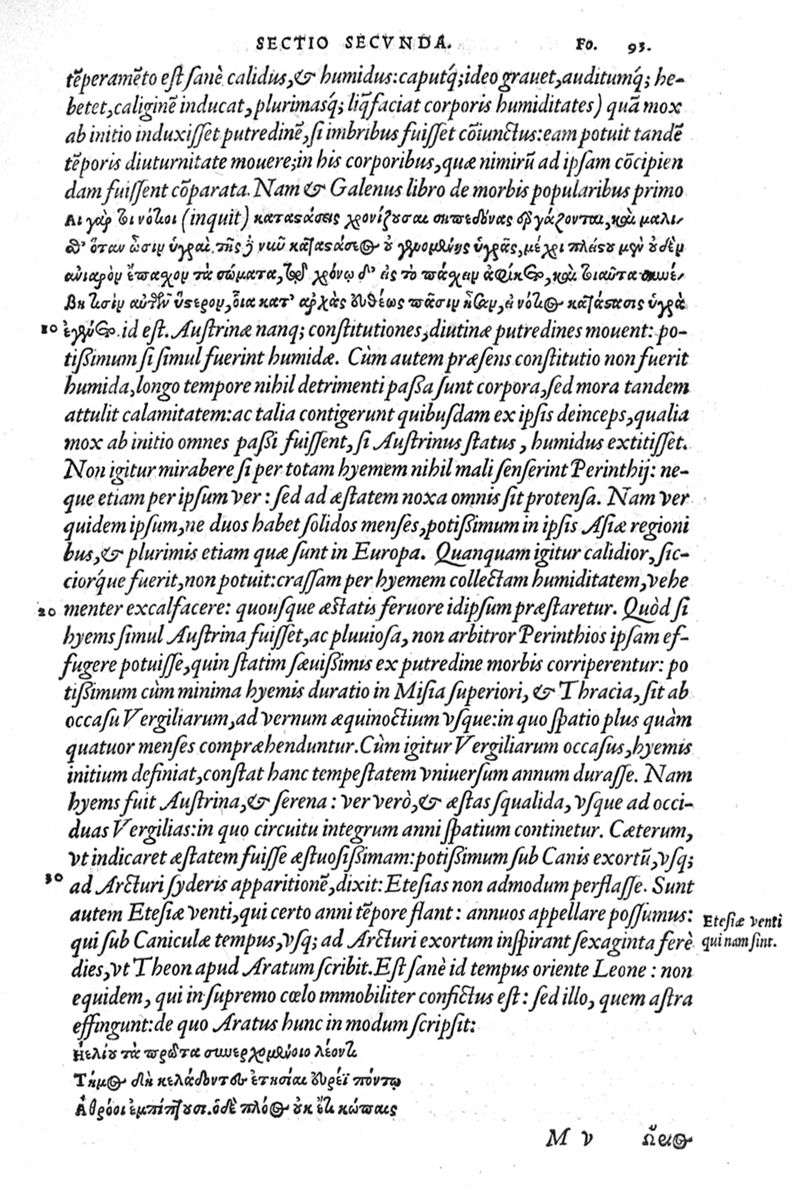 SECTIO SECVNDA. Fo. 93.
tẽperamẽto est sanè calidus, & humidus: caputq́; ideo grauet, auditumq́; he-
betet, caliginẽ inducat, plurimasq́; liq̃faciat corporis humiditates) quã mox
ab initio induxisset putredinẽ, si imbribus fuisset cõiunctus: eam potuit tandẽ
tẽporis diuturnitate mouere; in his corporibus, quæ nimirũ ad ipsam cõcipien
dam fuissent cõparata. Nam & Galenus libro de morbis popularibus primo
Αι γὰρ τοι νότιοι (inquit) καταστάσεις χρονίζουσαι σηπεδόνας ἐργάζονται, καὶ μάλι-
σθ' ὅταν ὦσιν ὑγραὶ τῆς ὑγρᾶς, μέχρι πλείου μὲν οὐδὲν
ἀνιαρὸν ἔπασχον τὰ σώματα, χρόνῳ δ' εἰς τὸ πάσχειν ἀφίκετο, καὶ τοιαῦτα συνέ-
βη τισὶν αὐτῶν ὕστερον, οἷα κατ' ἀρχὰς εὐθέως πᾶσιν ἦσαν, εἰ νότιος κατάστασις ὑγρὰ
10 ἐγένετο. id est. Austrinæ nanq; constitutiones, diutinæ putredines mouent: po-
tißimum si simul fuerint humidæ. Cùm autem præsens constitutio non fuerit
humida, longo tempore nihil detrimenti paßa sunt corpora, sed mora tandem
attulit calamitatem: ac talia contigerunt quibusdam ex ipsis deinceps, qualia
mox ab initio omnes paßi fuissent, si Austrinus status, humidus extitisset.
Non igitur mirabere si per totam hyemem nihil mali senserint Perinthij: ne-
que etiam per ipsum ver: sed ad æstatem noxa omnis sit protensa. Nam ver
quidem ipsum, ne duos habet solidos menses, potißimum in ipsis Asiæ regioni
bus, & plurimis etiam quæ sunt in Europa. Quanquam igitur calidior, sic-
ciorq́ue fuerit, non potuit: crassam per hyemem collectam humiditatem, vehe
20 menter excalfacere: quousque æstatis feruore idipsum præstaretur. Quòd si
hyems simul Austrina fuisset, ac pluuiosa, non arbitror Perinthios ipsam ef-
fugere potuisse, quin statim sæuißimis ex putredine morbis corriperentur: po
tißimum cùm minima hyemis duratio in Misia superiori, & Thracia, sit ab
occasu Vergiliarum, ad vernum æquinoctium vsque: in quo spatio plus quàm
quatuor menses compræhenduntur. Cùm igitur Vergiliarum occasus, hyemis
initium definiat, constat hanc tempestatem vniuersum annum durasse. Nam
hyems fuit Austrina, & serena: ver verò, & æstas squalida, vsque ad occi-
duas Vergilias: in quo circuitu integrum anni spatium continetur. Cæterum,
vt indicaret æstatem fuisse æstuosißimam: potißimum sub Canis exortũ, vsq;
30 ad Arcturi syderis apparitionẽ, dixit: Etesias non admodum perflasse. Sunt
autem Etesiæ venti, qui certo anni tẽpore flant: annuos appellare possumus:
qui sub Caniculæ tempus, vsq; ad Arcturi exortum inspirant sexaginta ferè
dies, vt Theon apud Aratum scribit. Est sanè id tempus oriente Leone: non
equidem, qui in supremo cœlo immobiliter confictus est: sed illo, quem astra
effingunt: de quo Aratus hunc in modum scripsit:
Etesiæ venti
qui nam sint.
Ἡελίου τὰ πρῶτα συνερχομένοιο λέοντι
Τῆμος δὴ κελάδοντες ἐτησίαι εὐρέϊ πόντῳ
Ἀθρόοι ἐμπίπτουσι. ὁ δὲ πλόος οὐκ ἔτι κώπαις
M v Ὥριος